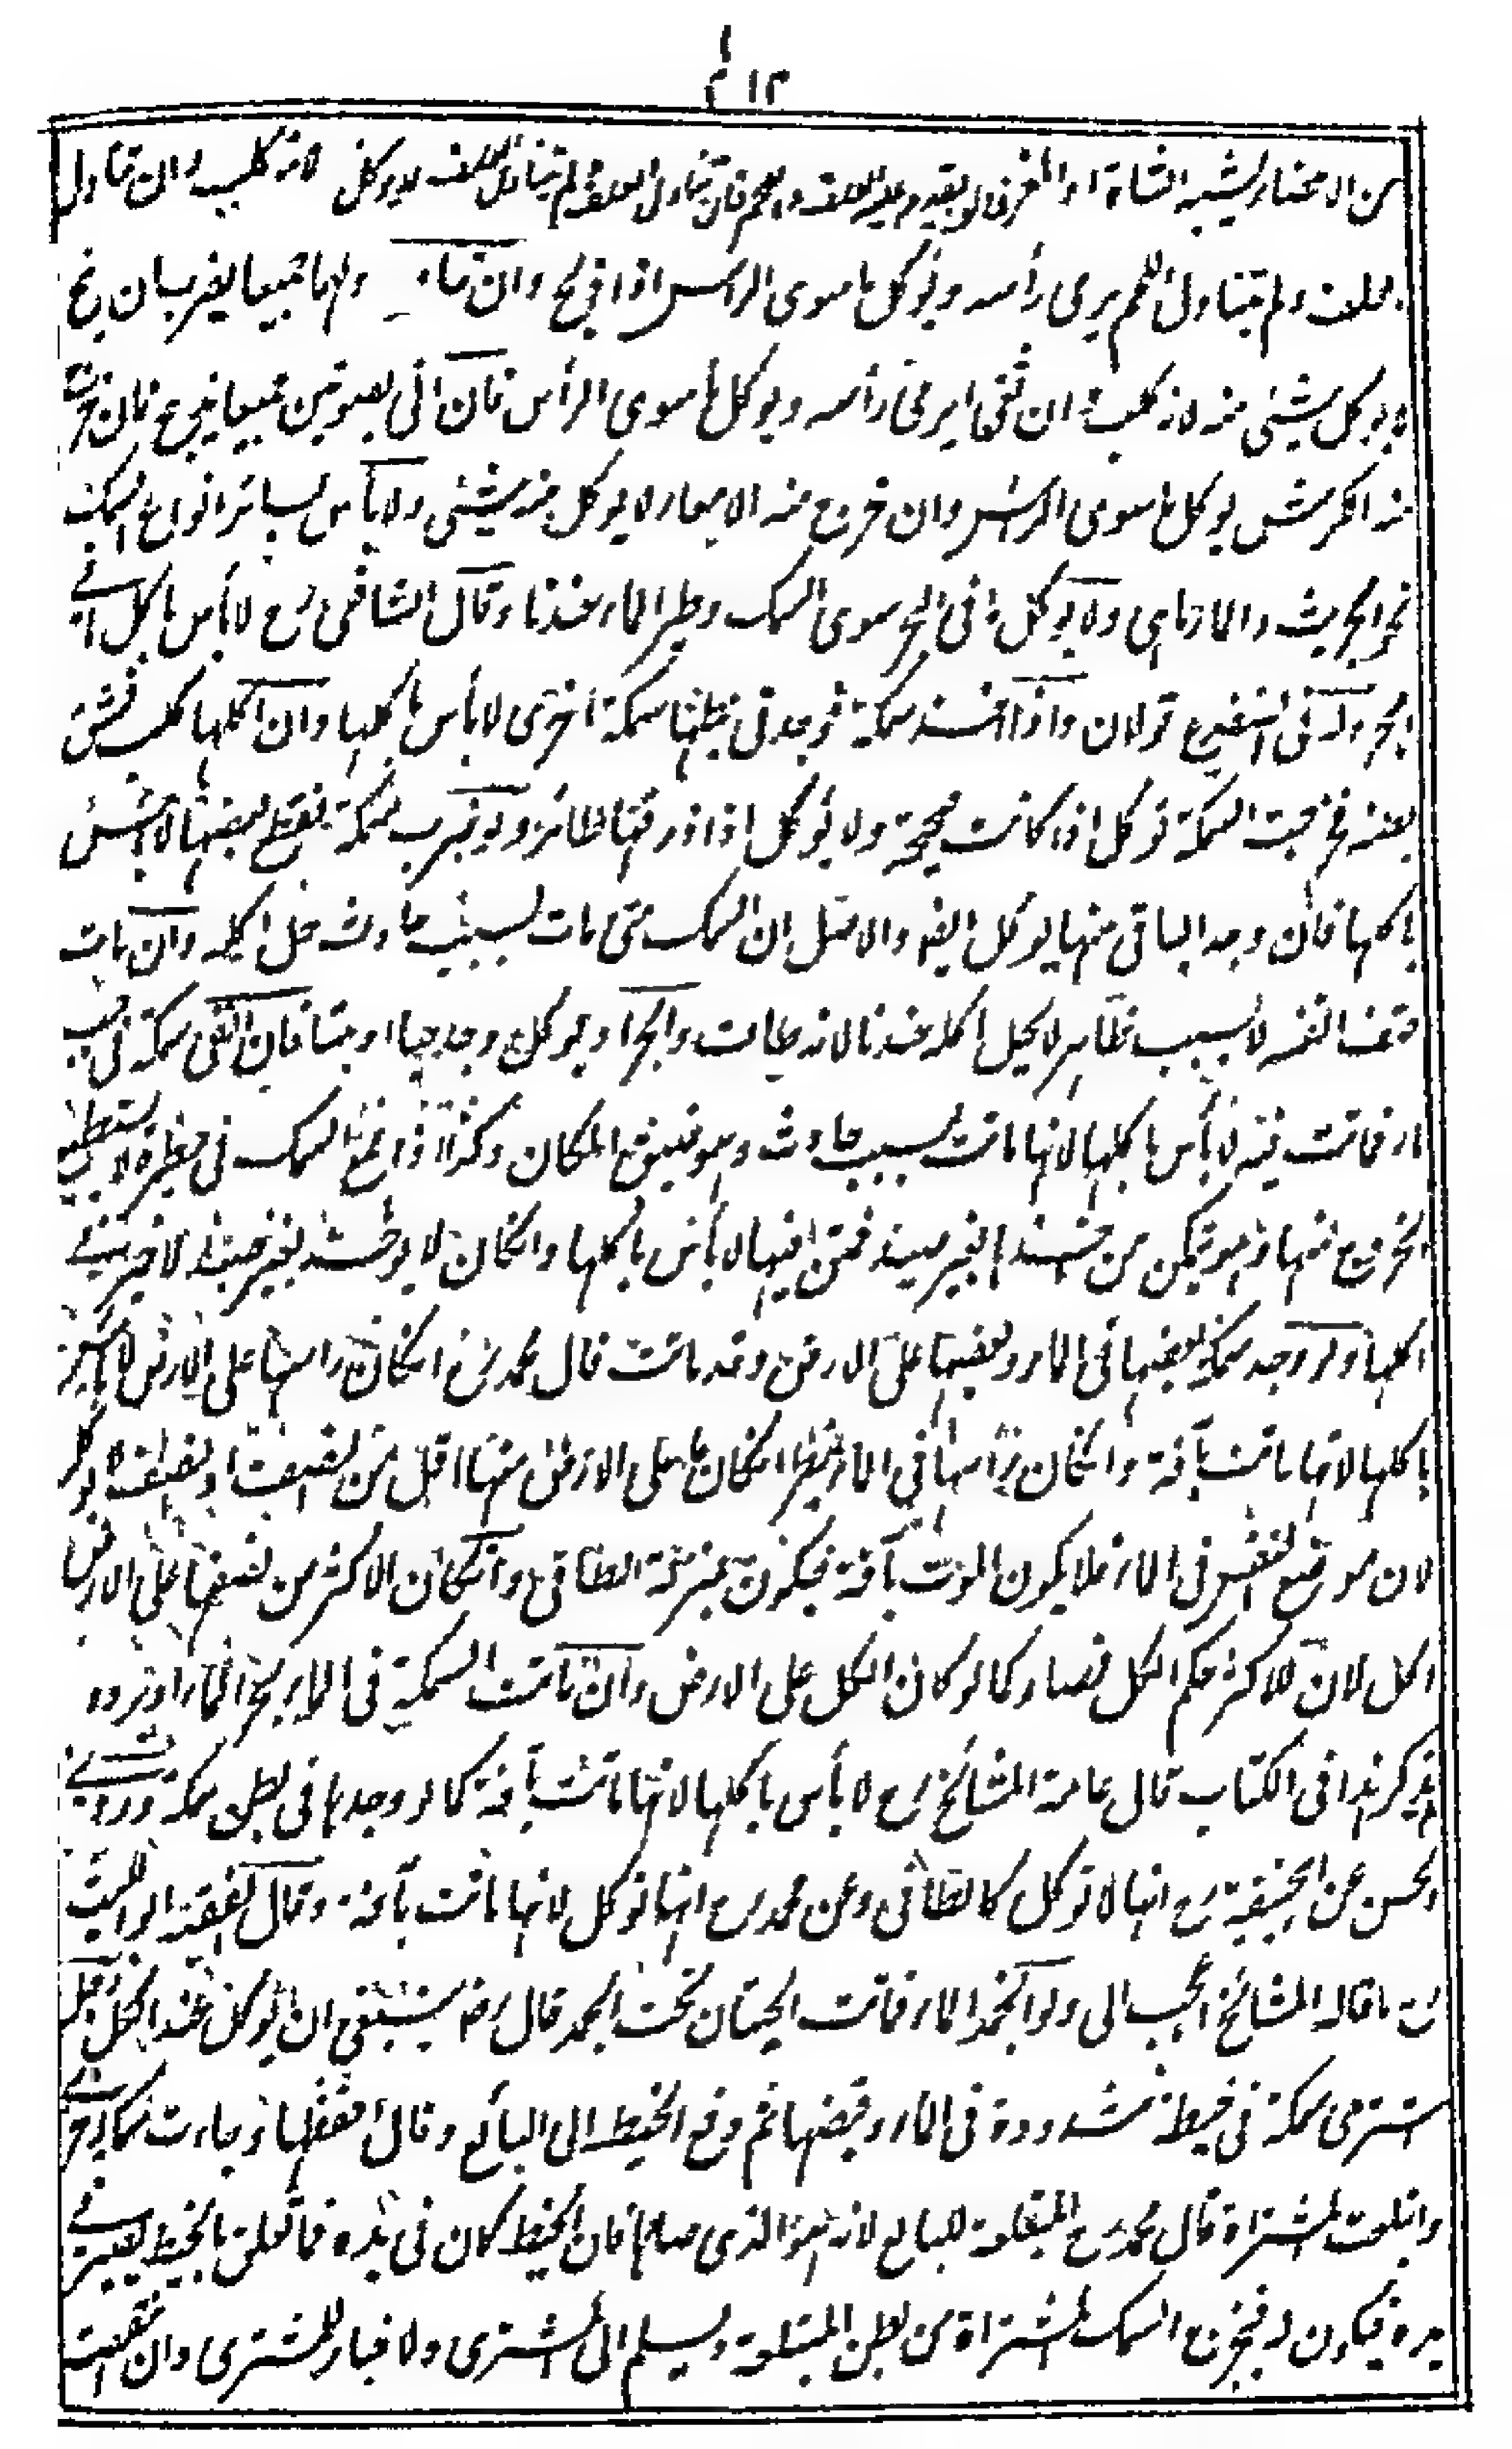 ٤١٢
من الاعضاء يشبه الشاة او المعز فانه يقدم عليه العلف واللحم فان تناول اللحم ولم يتناول العلف لا يوكل لانه كلب وان تناول
العلف ولم يتناول اللحم يرمى رأسه ويوكل ما سوى الراس اذا ذبح وان تناولهما جميعا يضرب ان نبح
لا يوكل شيئى منه لانه كلب وان ثغى يرمى رأسه ويوكل ما سوى الرأس فان اتى بصوتين جميعا يذبح فان خرج
منه الكرش يوكل ما سوى الراس وان خرج منه الامعاء لا يوكل منه شيئى ولا بأس بسائر انواع السمك
نحو الجريث والمارماهى ولا يوكل ما فى البحر سوى السمك وطير الماء عندنا وقال الشافعى رح لا بأس باكل ما فى
البحر وله فى الضفدع قولان واذا اخذ سمكة فوجد فى بطنها سمكة اخرى لا بأس باكلها وان اكلها كلب فشق
بطنه فخرجت السمكة توكل اذا كانت صحيحة ولا يوكل اذا ذرقها طائر ولو ضرب سمكة فقطع بعضها لا بأس
باكلها فان وجد الباقى منها يوكل ايضا والاصل ان السمك متى مات بسبب حادث حل اكله وان مات
حتف انفه لا بسبب ظاهر لا يحل اكله عندنا لانه طاف والجراد يوكل وجد حيا او ميتا فان القى سمكة فى جب
ماء فماتت فيه لا بأس باكلها لانها ماتت بسبب حادث وهو ضيق المكان وكذا اذا جمع السمك فى حظيرة لا يستطيع
الخروج منها وهو يتمكن من اخذها بغير صيد فمتن فيها لا بأس باكلها وان كان لا يوخذ بغير صيد لا خير فى
اكلها ولو وجد سمكة بعضها فى الماء وبعضها على الارض وقد ماتت قال محمد رح ان كان رأسها على الارض لا بأس
باكلها لانها ماتت بآفة وان كان رأسها فى الماء ينظر ان كان ما على الارض منها اقل من النصف او نصفه لا يوكل
لان موضع النفس فى الماء فلا يكون الموت بآفة فيكون بمنزلة الطافى وان كان الاكثر من نصفها على الارض
اكل لان للاكثر حكم الكل فصار كما لو كان الكل على الارض وان ماتت السمكة فى الماء بحر الماء او برده
لم يذكر هذا فى الكتاب قال عامة المشائخ رح لا بأس باكلها لانها ماتت بآفة كما لو وجدها فى بطن سمكة وروى
الحسن عن ابيحنيفة رح انها لا توكل كالطافى وعن محمد رح انها توكل لانها ماتت بآفة وقال الفقيه ابو الليث
رح ما قاله المشائخ اعجب الى ولو انجمد الماء فماتت الحيتان تحت الجمد قال رض ينبغى ان يوكل عند الكل رجل
اشترى سمكة فى خيط مشدودة فى الماء وقبضها ثم دفع الخيط الى البائع وقال احفظها فجاءت سمكة اخرى
وابتلعت المشتراة قال محمد رح المبتلعة للبائع لانه هو الذى صادها فان الخيط كان فى يده فما تعلق بالخيط يصير فى
يده فيكون له فيخرج السمكة المشتراة من بطن المبتلعة ويسلم الى المشترى ولا خيار للمشترى وان نقصت